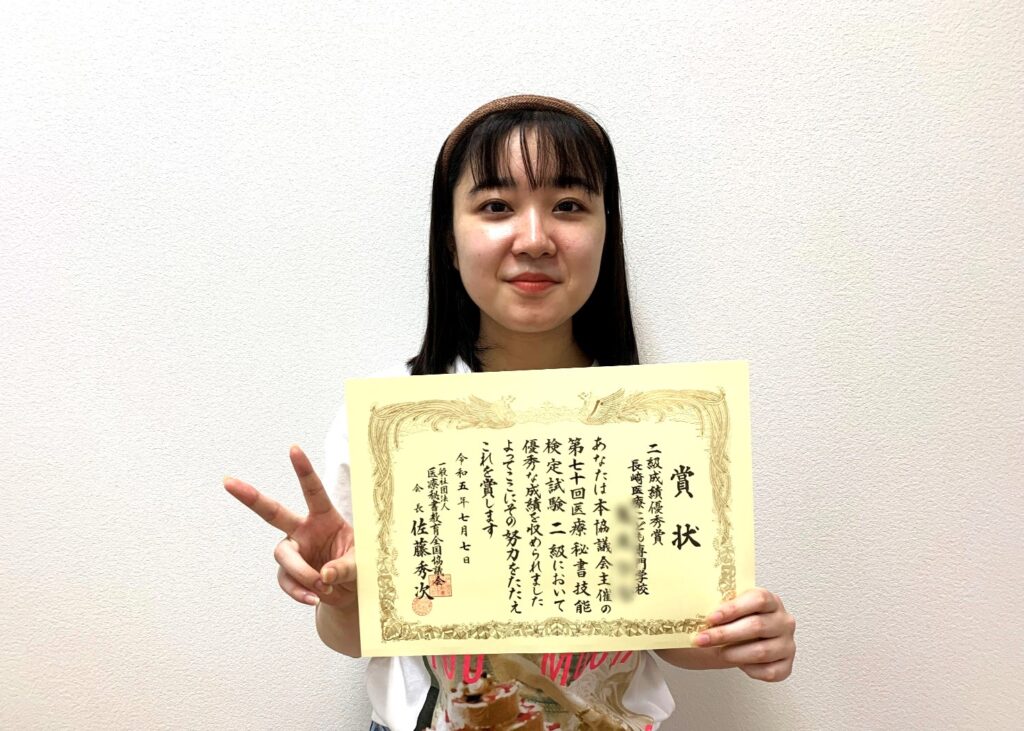 賞状
二級成績優秀賞
長崎医療こども専門学校
あなたは本協議会主催の
第七十回医療秘書技能
検定試験二級において
優秀な成績を収められました
よってここにその努力をたたえ
これを賞します
令和五年七月七日
一般社団法人
医療秘書教育全国協議会
会長 佐藤秀次